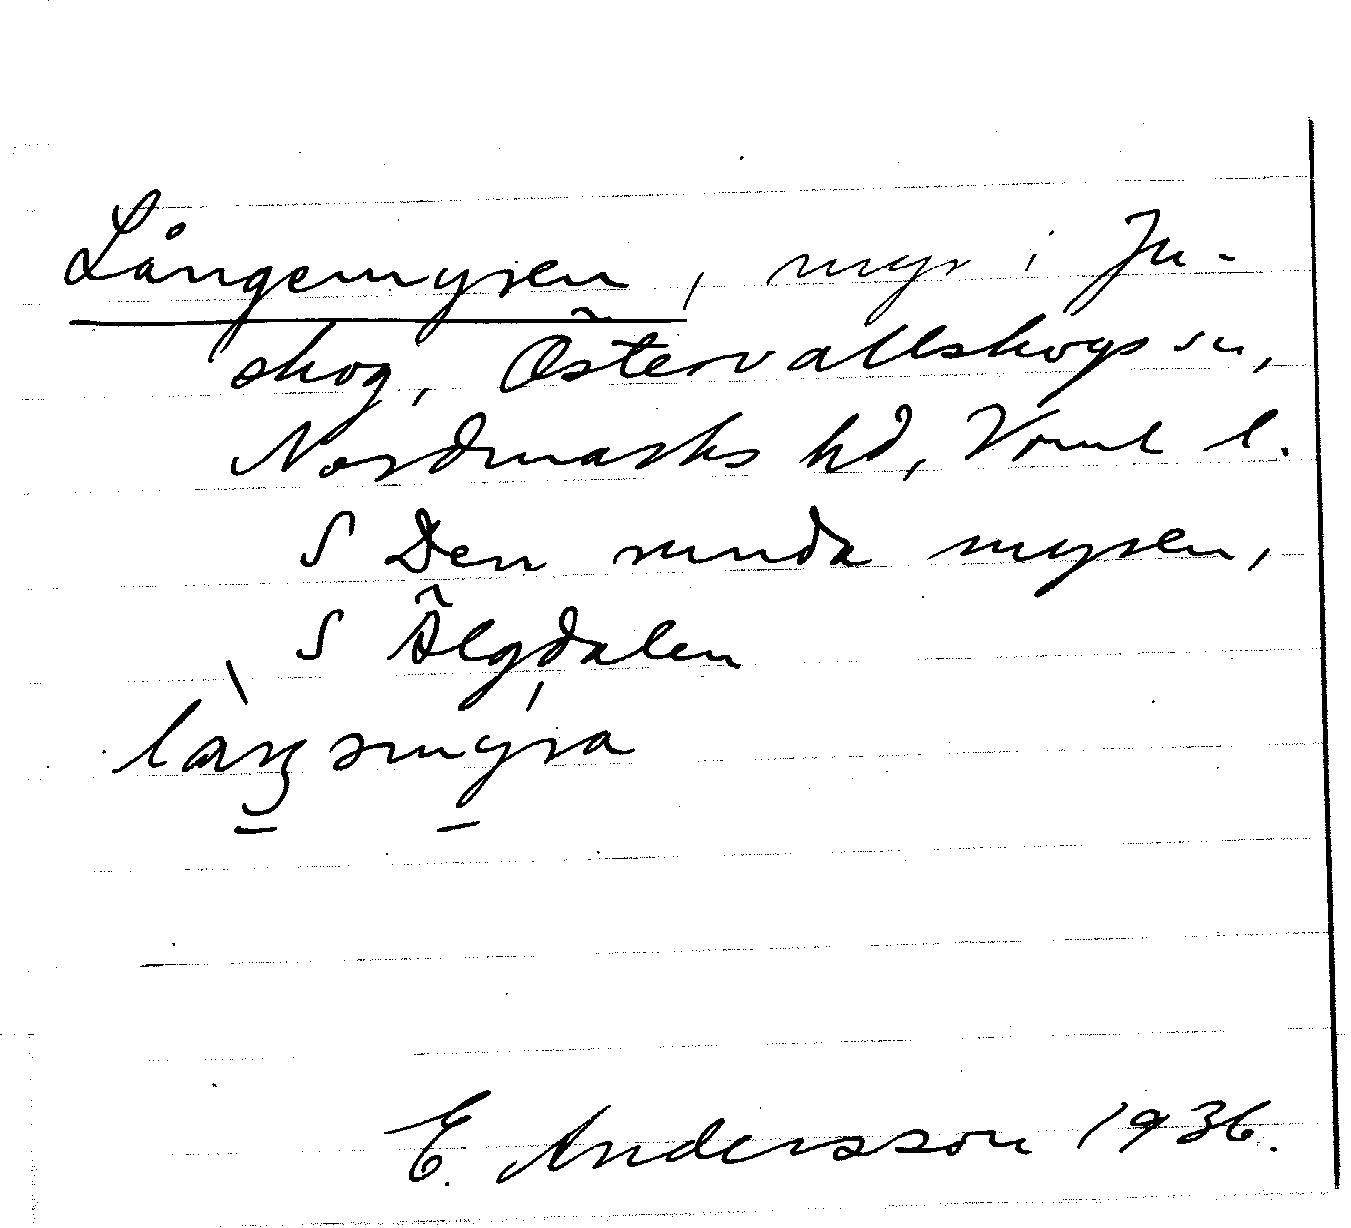 Långemyren, myr i Ju-
skog, Östervallskogs sn,
Nordmarks hd, Vrml l.
S Den runda myren,
S Älgdalen
làŋəmýra
E. Andersson 1936.